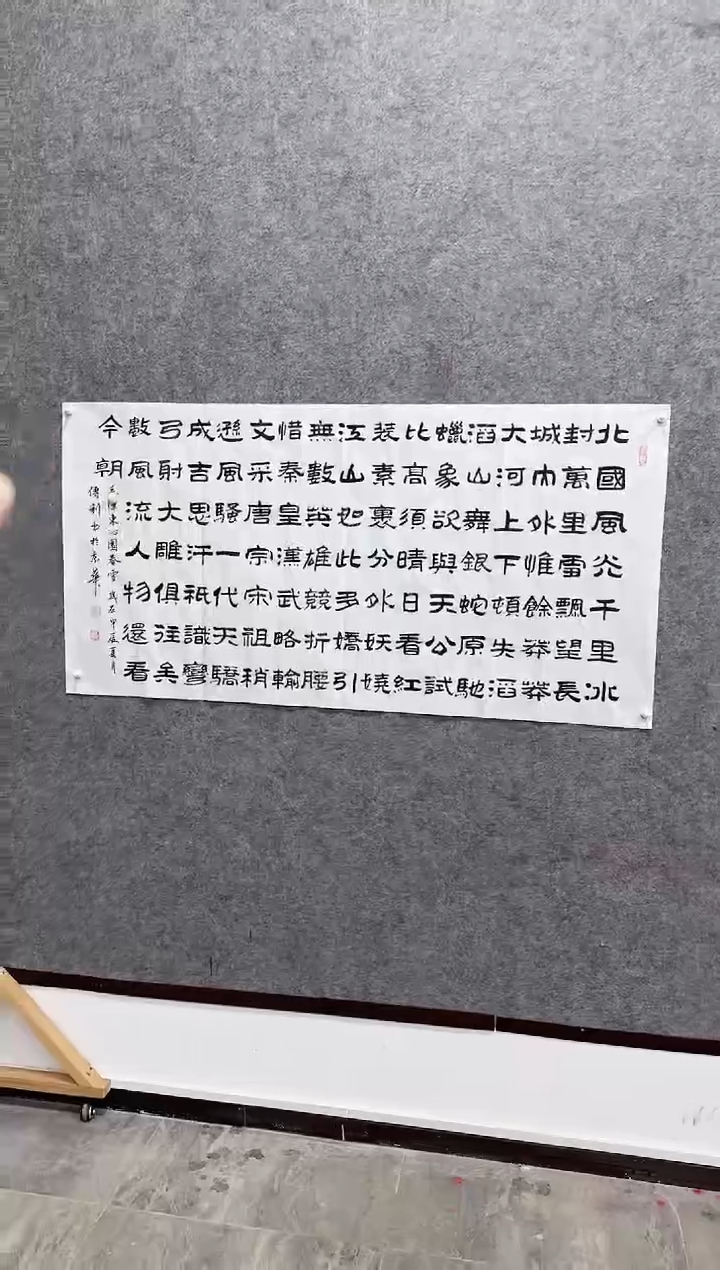 北國風光千里冰
封萬里雪飄望長
城内外惟餘莽莽
大河上下頓失滔
滔山舞銀蛇原馳
蠟象欲與天公試
比高須晴日看紅
裝素裹分外妖嬈
江山如此多嬌引
無數英雄競折腰
惜秦皇漢武略輸
文采唐宗宋祖稍
遜風騷一代天驕
成吉思汗祇識彎
弓射大雕俱往矣
數風流人物還看
今朝
毛澤東沁園春雪歲在甲辰夏月
傳利書於京華